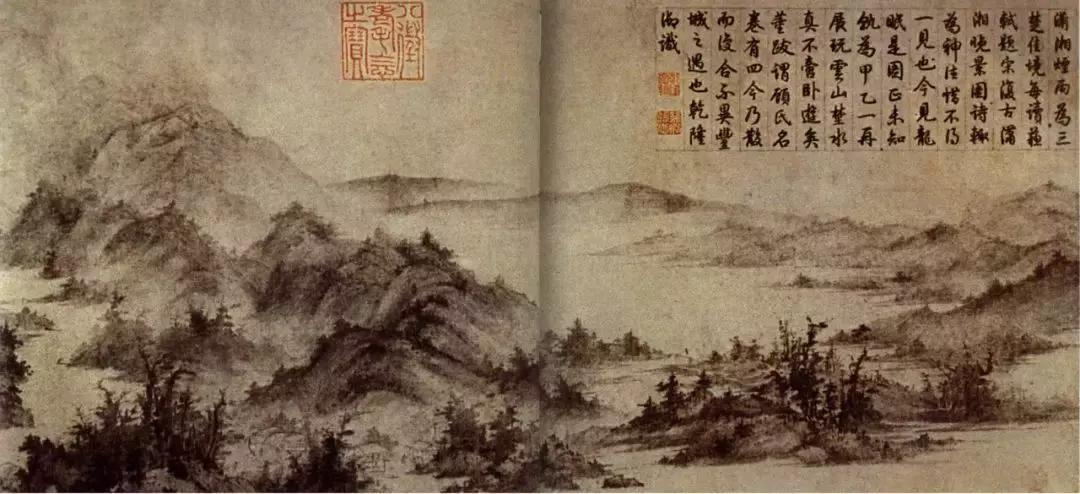 瀟湘煙雨為三
楚佳境每讀蘇
軾題宋復古瀟
湘晚景圖詩輒
為神往惜不得
一見也今見龍
眠是圖正未知
孰為甲乙一再
展玩雲山楚水
真不啻臥遊矣
董跋謂顧氏名
卷有四今乃散
而復合不異豐
城之遇也乾隆
御識
八徵
耄念
之寶